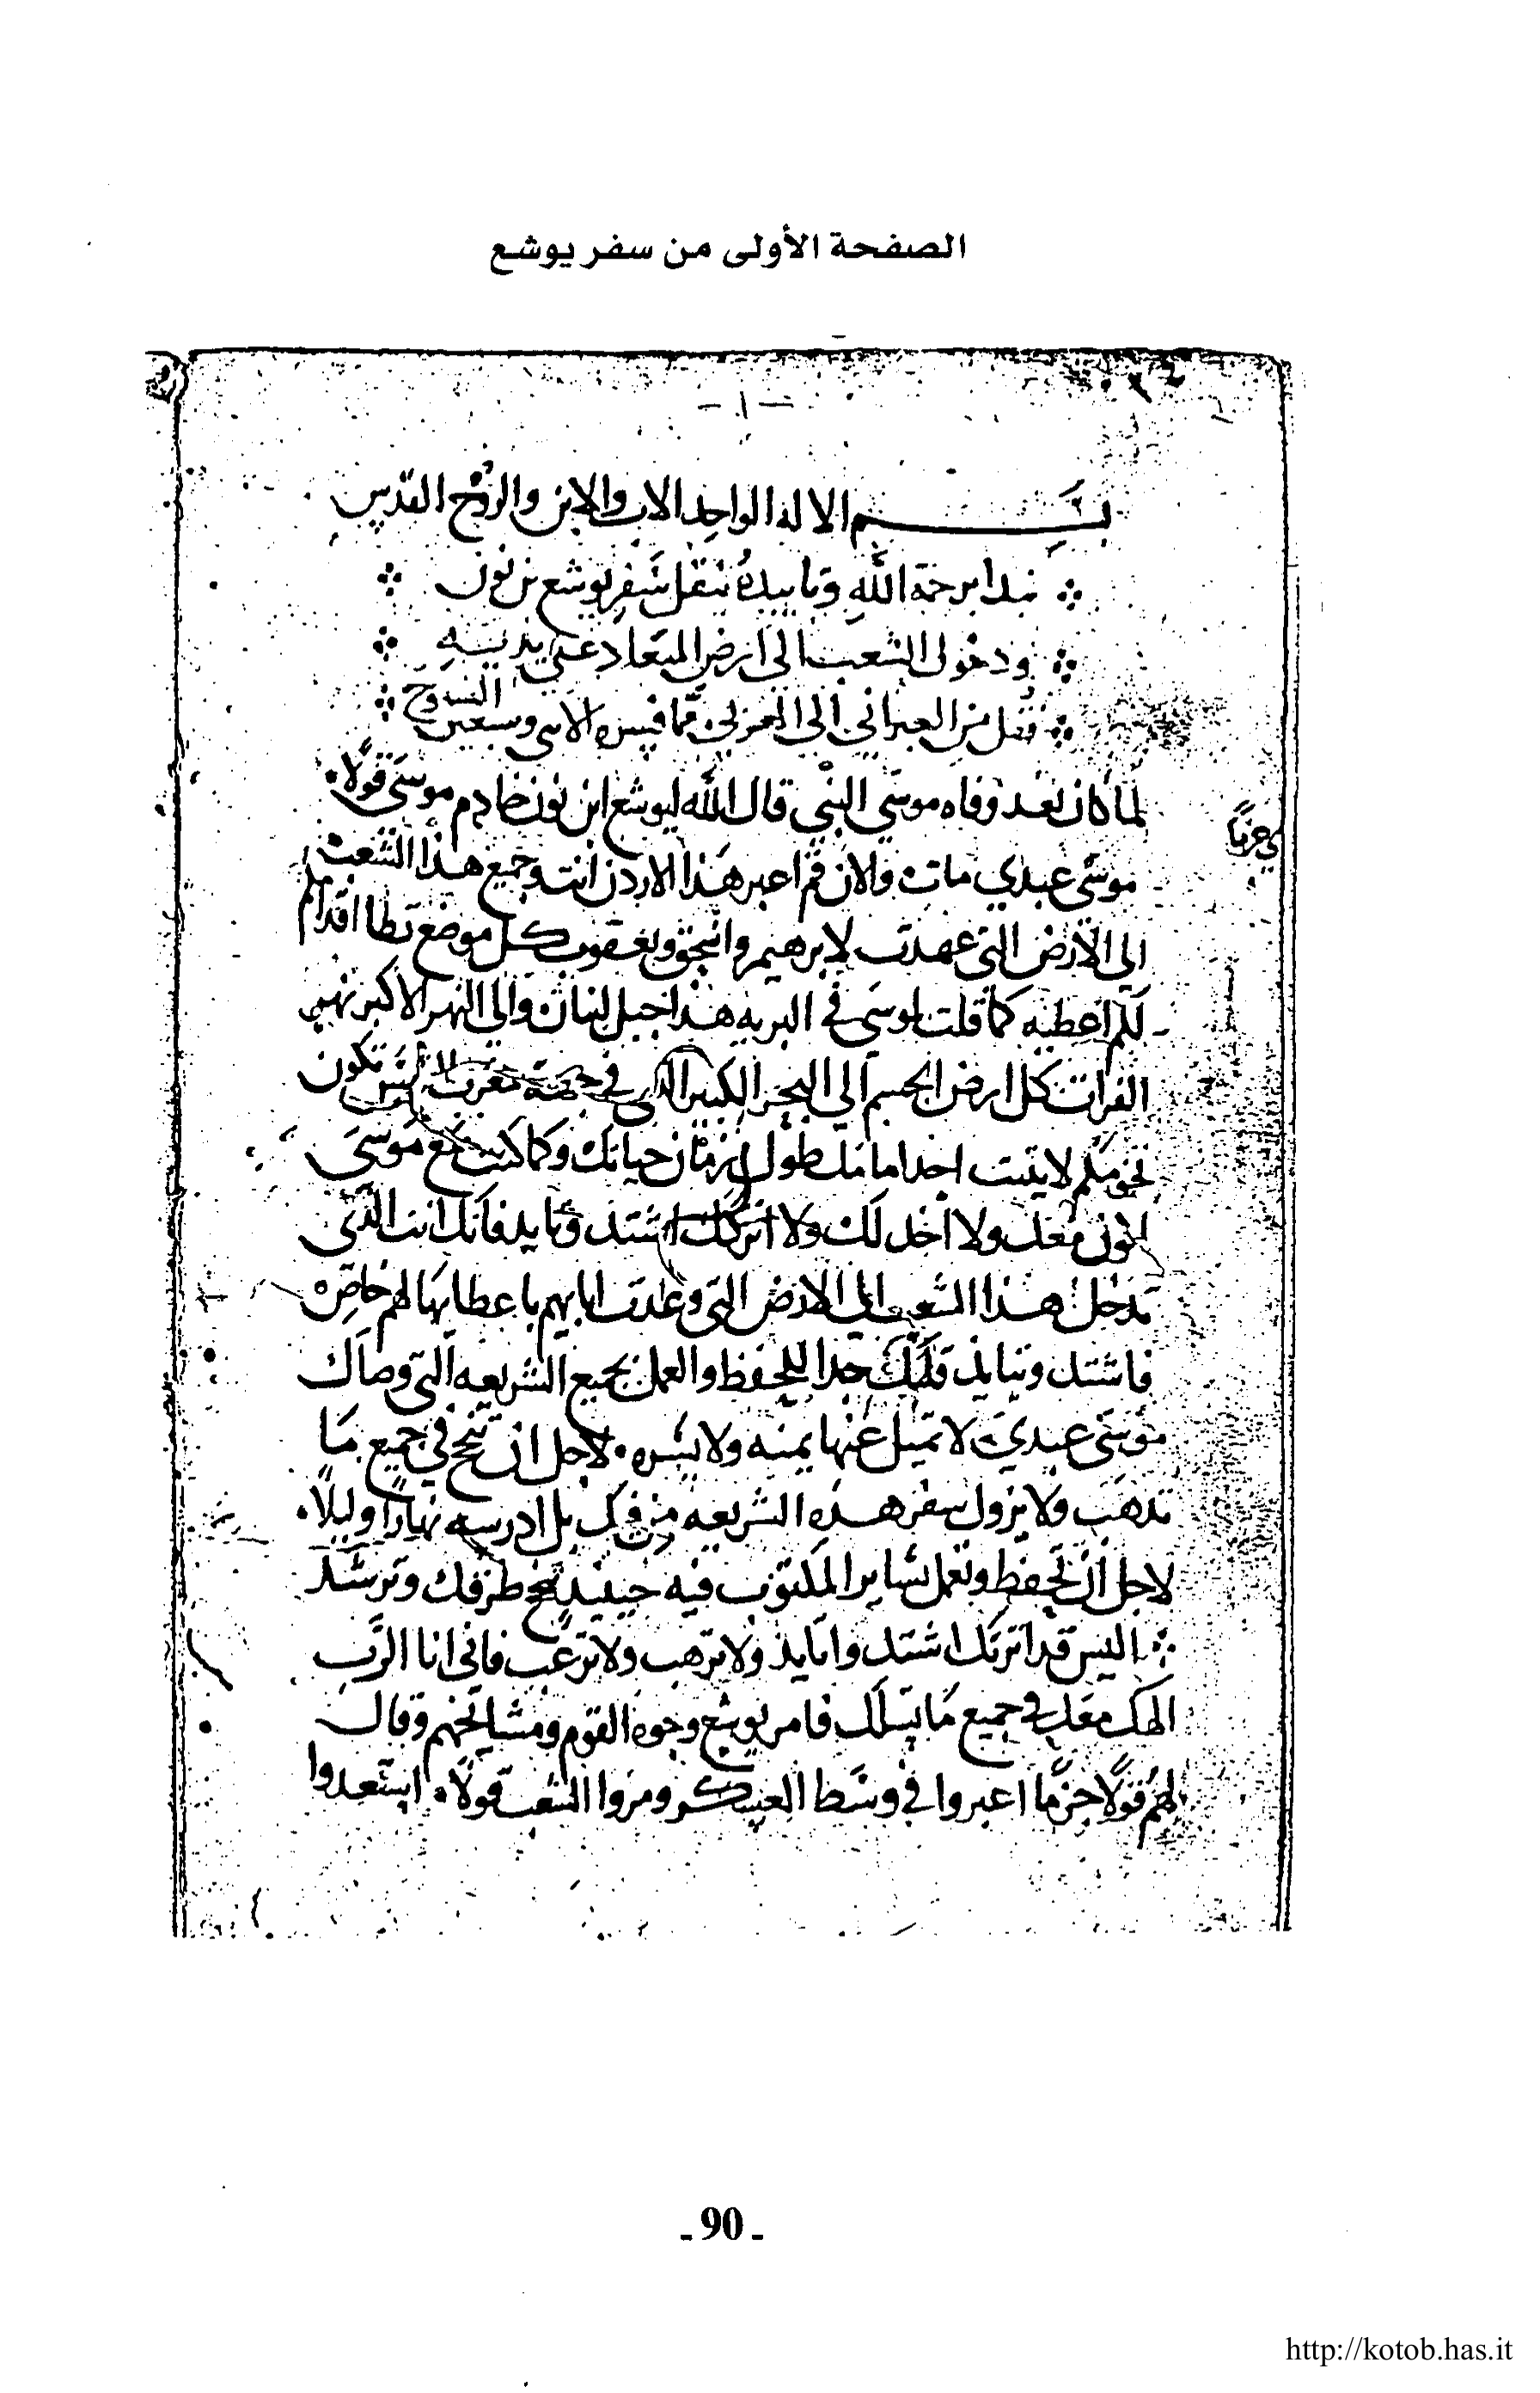 الصفحة الأولى من سفر يوشع
- ١ -
بسم الالاه الواحد الاب والابن والروح القدس
نبدا برحمة الله وتاييده بنقل سفر يوشع بن نون
ودخول الشعب الى ارض الميعاد على يديه
نقل من العبراني الى العربي مما فسره الاثنى وسبعين
لما كان بعد وفاه موسى النبي قال الله ليوشع ابن نون خادم موسى قولا
موسى عبدي مات والان قم اعبر هذا الاردن انت وجميع هذا الشعب
الى الارض التى عهدت لابرهيم واسحق ويعقوب كل موضع تطا اقدامكم
لكم اعطيه كما قلت لموسى في البريه هذا جبل لبنان والى النهر الاكبر نهر
الفرات كل ارض الى البحر الكبير الذى في جهة مغرب الشمس تكون
تخومكم لا يثبت احد امامك طول زمان حياتك وكما كنت مع موسى
اكون معك ولا اخذلك ولا اتركك اشتد وتايد فانك انت الذى
تدخل هذا الشعب الى الارض التى وعدت ابايهم باعطايها لهم خاصه
فاشتد وتايد قلبك جدا للحفظ والعمل بجميع الشريعه التى وصاك
موسى عبدي لا تميل عنها يمنه ولا يسره لاجل ان تنجح في جميع ما
تدهب ولا يزول سفر هذه الشريعه من فمك بل ادرسه نهارا وليلا
لاجل ان تحفظ وتعمل بساير المكتوب فيه حينيد تنجح طرقك وترشد
اليس قد امرتك اشتد وتايد ولا ترهب ولا ترعب فانى انا الرب
الهك معك في جميع ما تسلك فامر يوشع وجوه القوم ومشايخهم وقال
لهم قولا جزما اعبروا في وسط العسكر ومروا الشعب قولا استعدوا
- 90 -
http://kotob.has.it